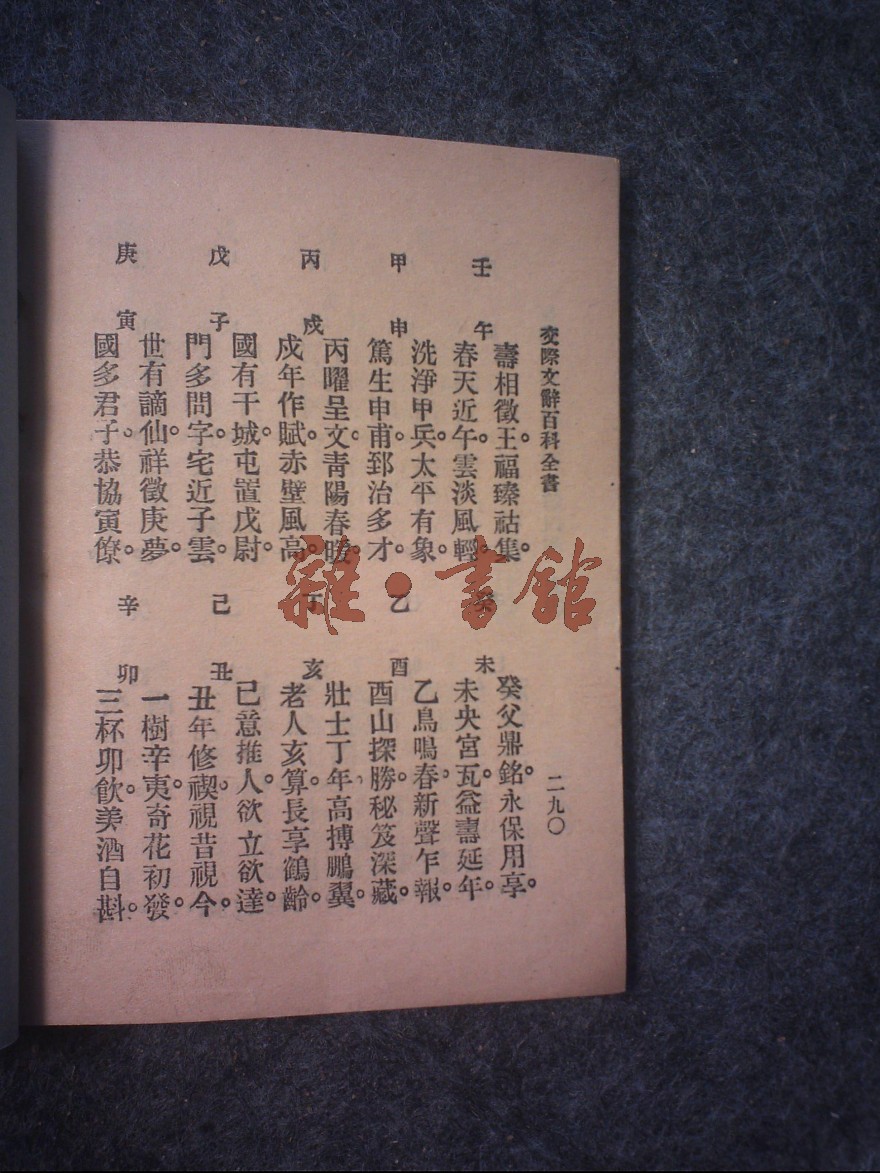 交際文辭百科全書
二九〇
壬午
壽相徵壬。福臻祜集。
春天近午。雲淡風輕。
癸未
癸父鼎銘。永保用享。
未央宮瓦。益壽延年。
甲申
洗淨甲兵。太平有象。
篤生申甫。郅治多才。
乙酉
乙鳥鳴春。新聲乍報。
酉山探勝。秘笈深藏。
丙戌
丙曜呈文。青陽春暖。
戌年作賦。赤壁風高。
丁亥
壯士丁年。高搏鵬翼。
老人亥算。長享鶴齡。
戊子
國有干城。屯置戊尉。
門多問字。宅近子雲。
己丑
己意推人。欲立欲達。
丑年修禊。視昔視今。
庚寅
世有謫仙。祥徵庚夢。
國多君子。恭協寅僚。
辛卯
一樹辛夷。奇花初發。
三杯卯飲。美酒自斟。
雜·書館